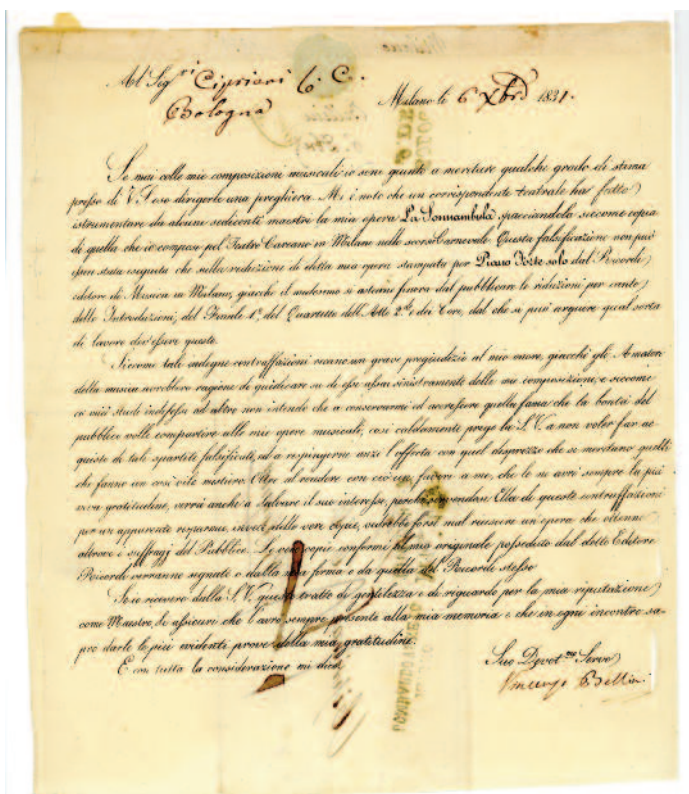 Al Sig.ri Cipriani & C.
Bologna
Milano li 6 Xbre 1831.
Se mai colle mie composizioni musicali io sono giunto a meritare qualche grado di stima
presso di V. S. oso dirigerle una preghiera. Mi è noto che un corrispondente teatrale ha fatto
istrumentare da alcuni sedicenti maestri la mia opera La Sonnambula spacciandola siccome copia
di quella che io composi pel Teatro Carcano in Milano nello scorso Carnovale. Questa falsificazione non può
esser stata eseguita che sulla riduzione di detta mia opera stampata per Piano Forte solo dal Ricordi
editore di Musica in Milano, giacchè il medesimo si astenne finora dal pubblicare le riduzioni per canto
delle Introduzioni, del Finale 1.º del Quartetto dell'Atto 2.do e dei Cori, dal che si può arguire qual sorta
di lavoro dev'essere questo.
Siccome tale indegne contraffazioni recano un grave pregiudizio al mio onore, giacchè gli Amatori
della musica avrebbero ragione di giudicare su di esse assai sinistramente delle mie composizione, e siccome
co' miei studi indefessi ad altro non intendo che a conservarmi ed accrescere quella fama che la bontà del
pubblico volle compartire alle mie opere musicale, così caldamente prego la S. V. a non voler far ac-
quisto di tali spartiti falsificati, ed a respingerne anzi l'offerta con quel disprezzo che si meritano quelli
che fanno un così vile mistiero. Oltre al rendere con ciò un favore a me, che le ne avrò sempre la più
viva gratitudine, verrà anche a salvare il suo interesse, perchè servendosi Ella di queste contraffazioni
per un apparente risparmio, invece delle vere copie, vedrebbe forse mal riuscire un'opera che ottenne
altrove i suffragj del Pubblico. Le vere copie conformi al mio originale posseduto dal detto Editore
Ricordi verranno segnate o dalla mia firma o da quella del Ricordi stesso
Se io riceverò dalla S. V. questo tratto di gentilezza e di riguardo per la mia riputazione
come Maestro, le assicuro che l'avrò sempre presente alla mia memoria e che in ogni incontro sa-
prò darle le più evidenti prove della mia gratitudine.
E con tutta la considerazione mi dico
Suo Devot.mo Servo
Vincenzo Bellini